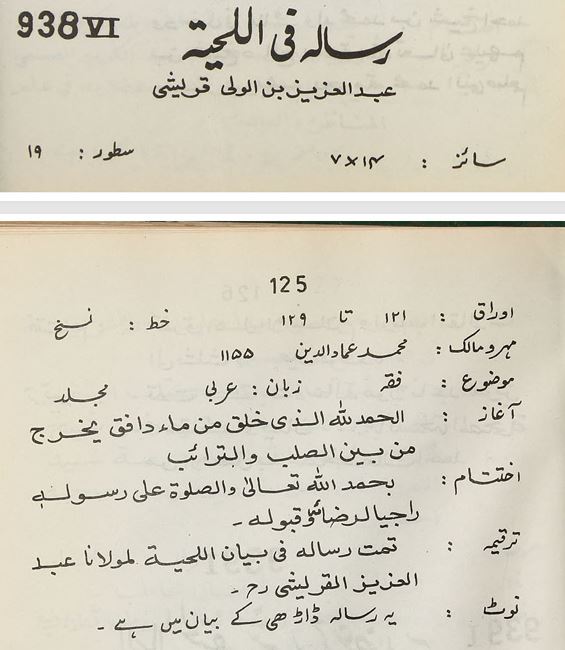 938 VI
رساله فی اللحیته
عبدالعزیز بن الولی قریشی
سائز : ۱۴×۷ سطور : ۱۹
125
اوراق : ۱۲۱ تا ۱۲۹ خط : نسخ
مہرومالک : محمد عمادالدین ۱۱۵۵
موضوع : فقہ زبان : عربی مجلد
آغاز : الحمدللہ الذی خلق من ماء دافق یخرج
من بین الصلب والترائب
اختتام : بحمد اللہ تعالیٰ والصلوة علی رسولہ
راجیا لرضائہ وقبولہ ۔
ترقیمہ : تمت رسالہ فی بیان اللحیة لمولانا عبد
العزیز القریشی رح ۔
نوٹ : یہ رسالہ ڈاڑھی کے بیان میں ہے ۔